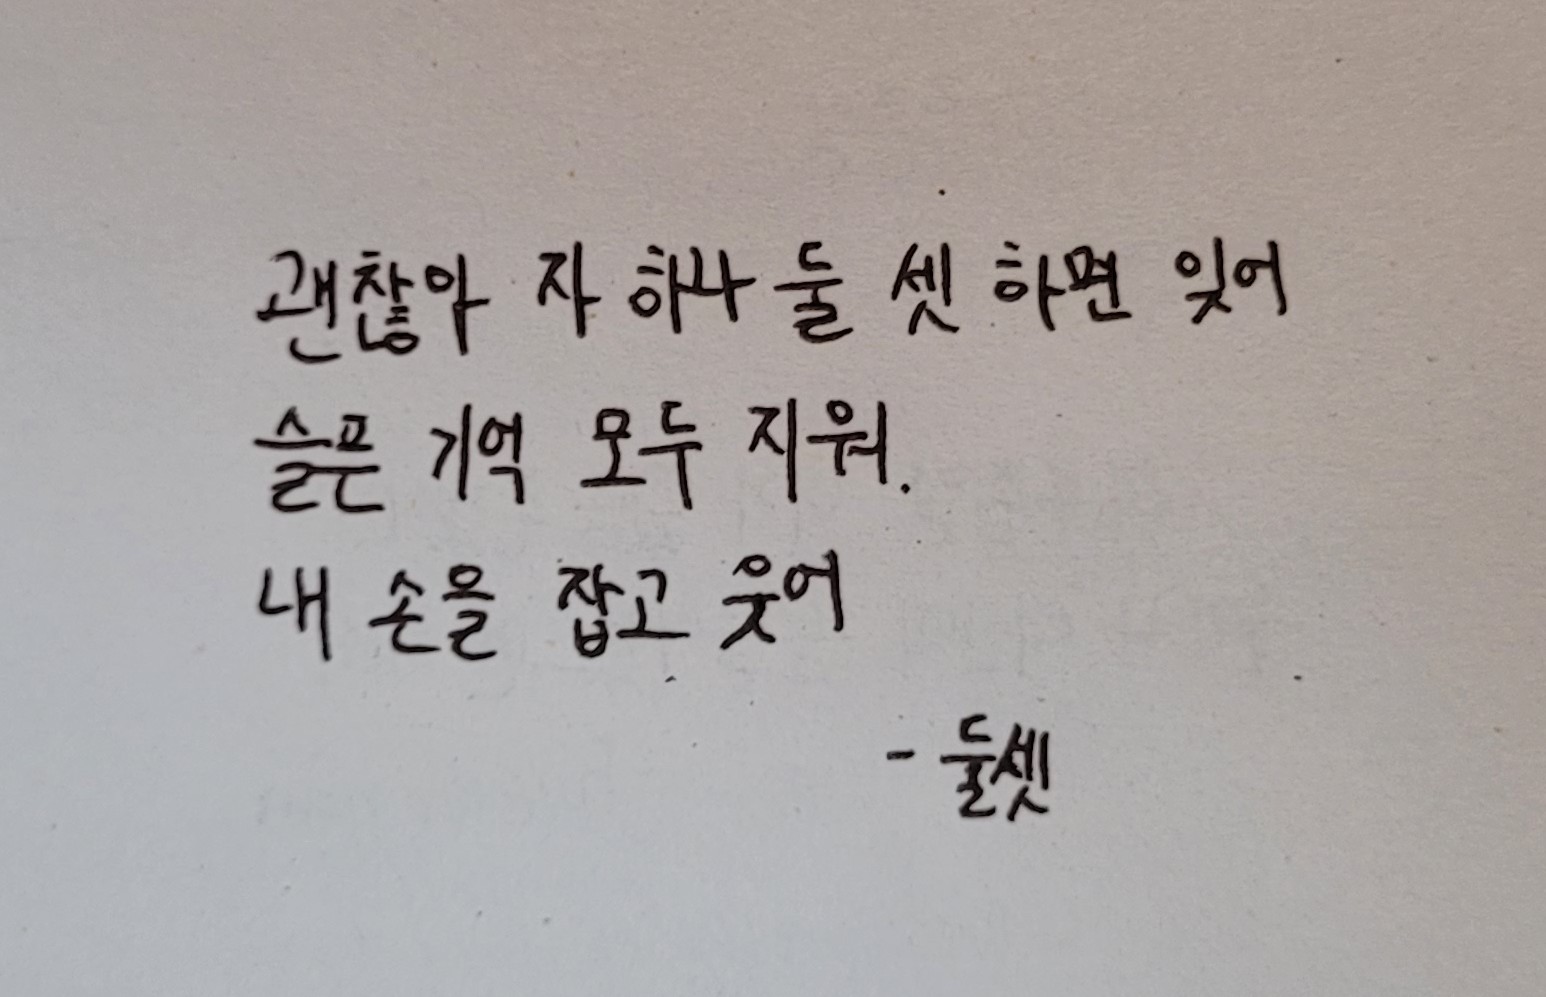 괜찮아 자 하나 둘 셋 하면 잊어
슬픈 기억 모두 지워.
내 손을 잡고 웃어
- 둘셋